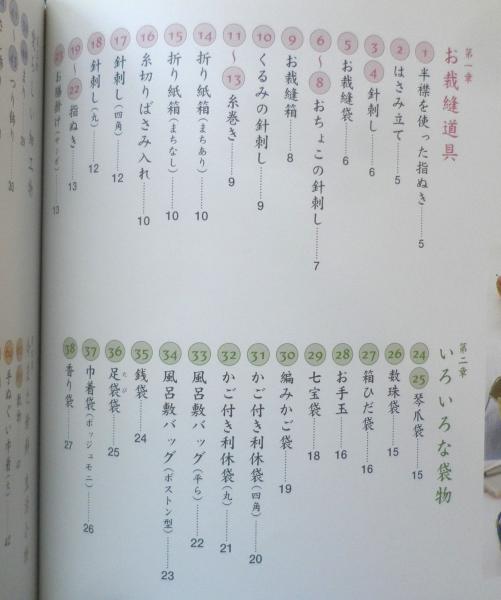 第一章
お裁縫道具
1 半襟を使った指ぬき……5
2 はさみ立て……5
3 4 針刺し……6
5 お裁縫袋……6
6～8 おちょこの針刺し……7
9 お裁縫箱……8
10 くるみの針刺し……9
11～13 糸巻き……9
14 折り紙箱(まちあり)……10
15 折り紙箱(まちなし)……10
16 糸切りばさみ入れ……10
17 針刺し(四角)……12
18 針刺し(丸)……12
19～22 指ぬき……13
13
第二章
いろいろな袋物
24 25 琴爪袋……15
26 数珠袋……15
27 箱ひだ袋……16
28 お手玉……16
29 七宝袋……18
30 編みかご袋……19
31 かご付き利休袋(四角)……20
32 かご付き利休袋(丸)……21
33 風呂敷バッグ(平ら)……22
34 風呂敷バッグ(ボストン型)……23
35 銭袋……24
36 足袋袋……25
たび
37 巾着袋(ポッジュモニ)……26
38 香り袋……27